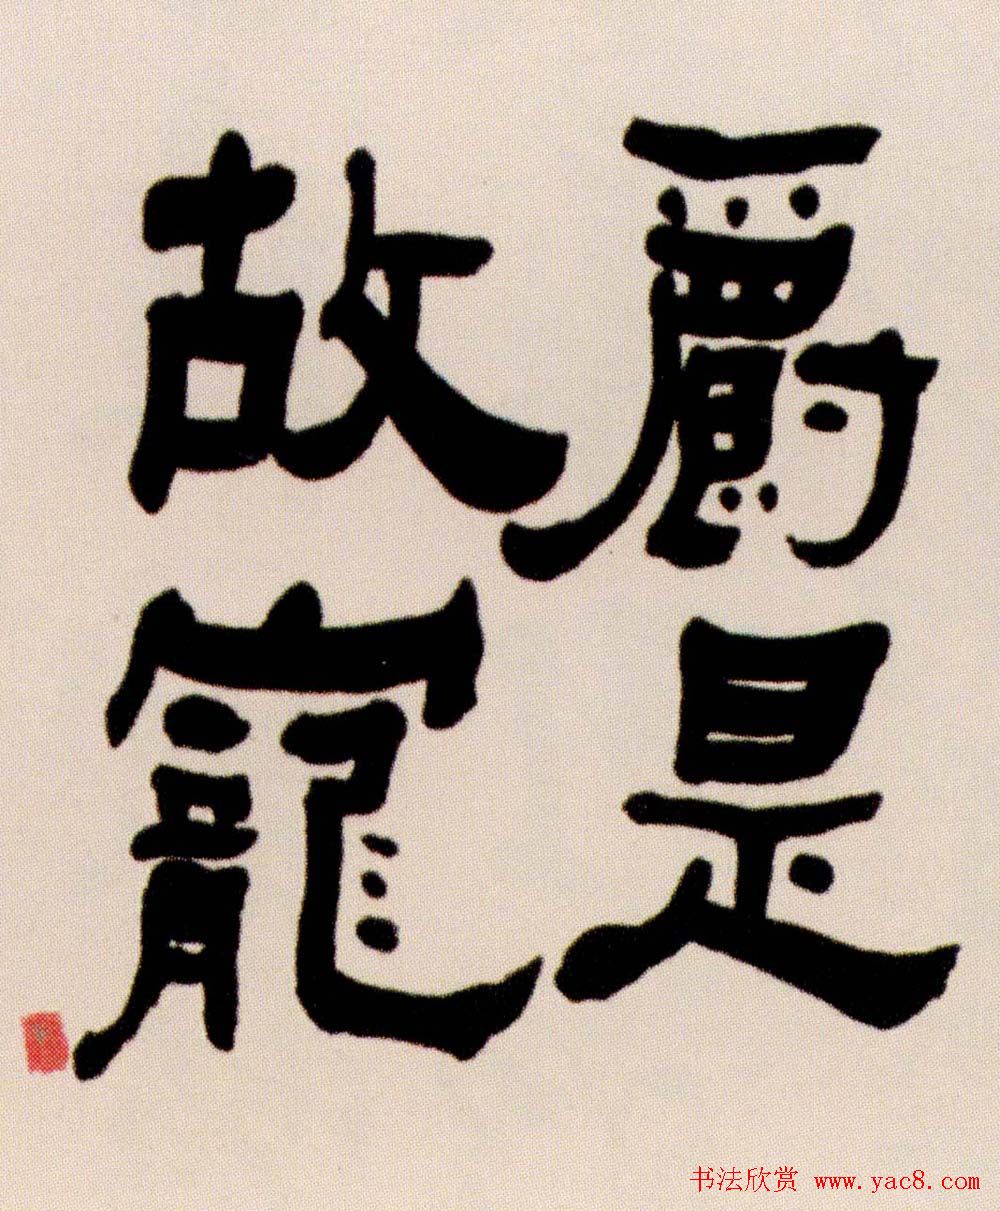 爵是
故寵
书法欣赏 www.yac8.com